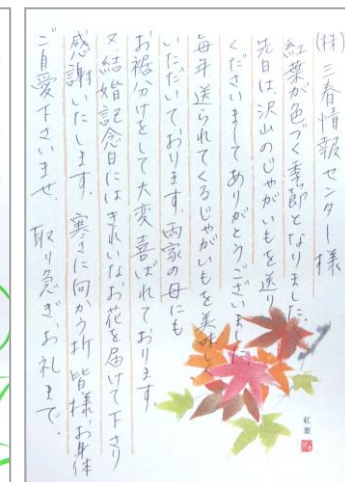 (株)三春情報センター様
紅葉が色づく季節となりました。
先日は、沢山のじゃがいもを送り
くださいましてありがとうございました
毎年送られてくるじゃがいもを美味しく
いただいております。両家の母にも
お裾分けをして大変喜ばれております。
又、結婚記念日にはきれいなお花を届けて下さり
感謝いたします。寒さに向かう折 皆様、お身体
ご自愛下さいませ。取り急ぎお礼まで。
紅葉